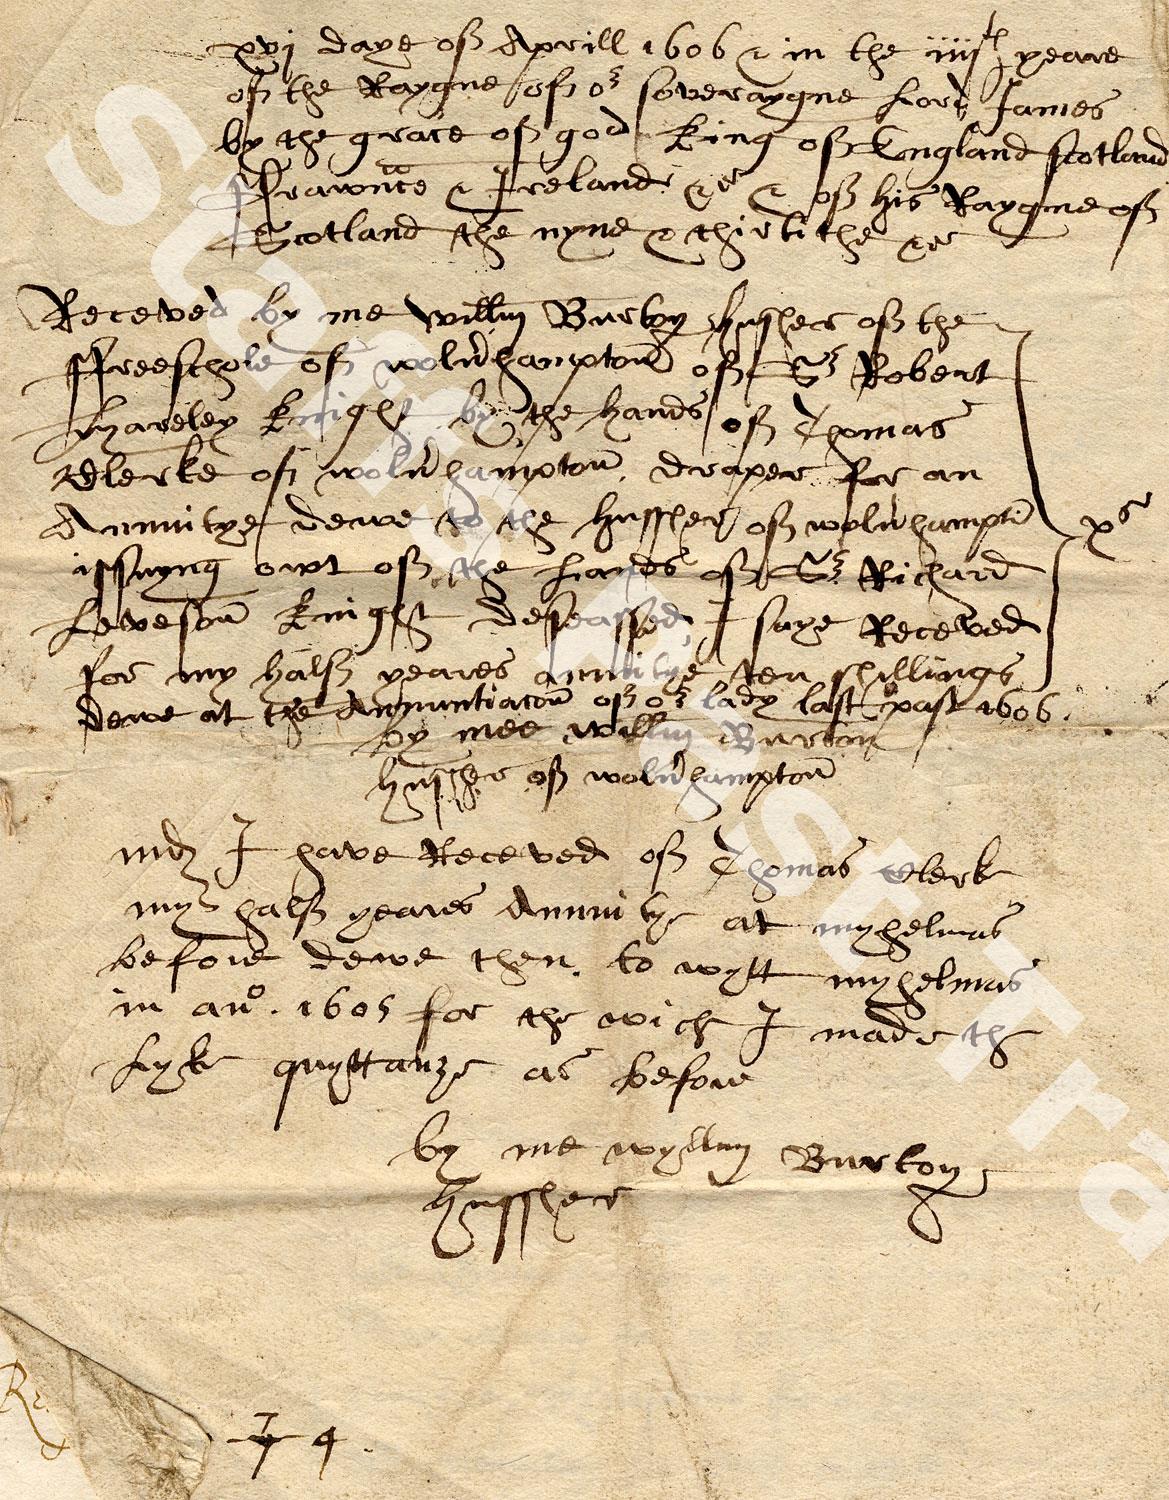 xvj daye off Aprill 1606 & in the iiijth yeare
off the Raygne off or soveraygne Lord James
by the grace off god King off England scotland
ffrawnce & Ireland &c & off his Raygne off
Scotland the nyne & thirtithe &c
Receved by me Willm Burton hussher off the
ffreeschole off wolurhampton off Sr Robert
Knight by the hands off Thomas
Clerke off wolurhampton draper for an
Annuitye dewe to the hussher off wolurhampton
issuyng owt off the Lands off Sr Richard
Leveson Knight deseassed, I saye Receved
for my halff yeares annuitye ten shillings
xs
dewe at the Annuntiacon off or lady last past 1606.
by mee willm Burton
hussher off wolurhampton
md I have Receved off Thomas Clerk
my halff yeares Annuitye at myhelmas
before dewe then, to wytt myhelmas
in ano. 1605 for the wich I made the
Lyke quyttanze as before
by me wyllm Burton
hussher
74.